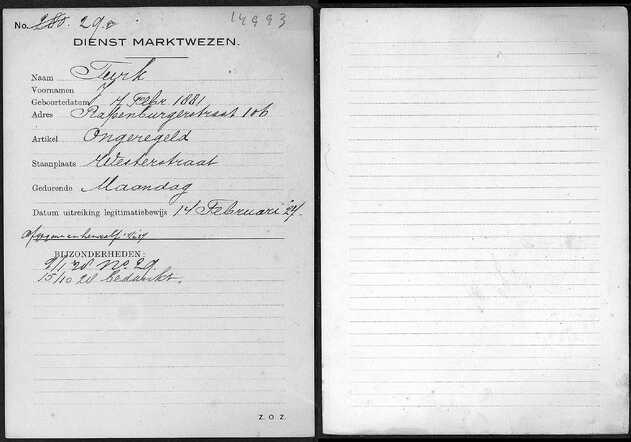 No. 288. 29.
14993
DIENST MARKTWEZEN.
Naam Turk
Voornamen
Geboortedatum 7 Febr 1881
Adres Rapenburgerstraat 106
Artikel Ongeregeld
Staanplaats Westerstraat
Gedurende Maandag
Datum uitreiking legitimatiebewijs 14 Februari '27.
BIJZONDERHEDEN:
9/1 28 No. 29.
15/10 28 bedankt.
Z. O. Z.